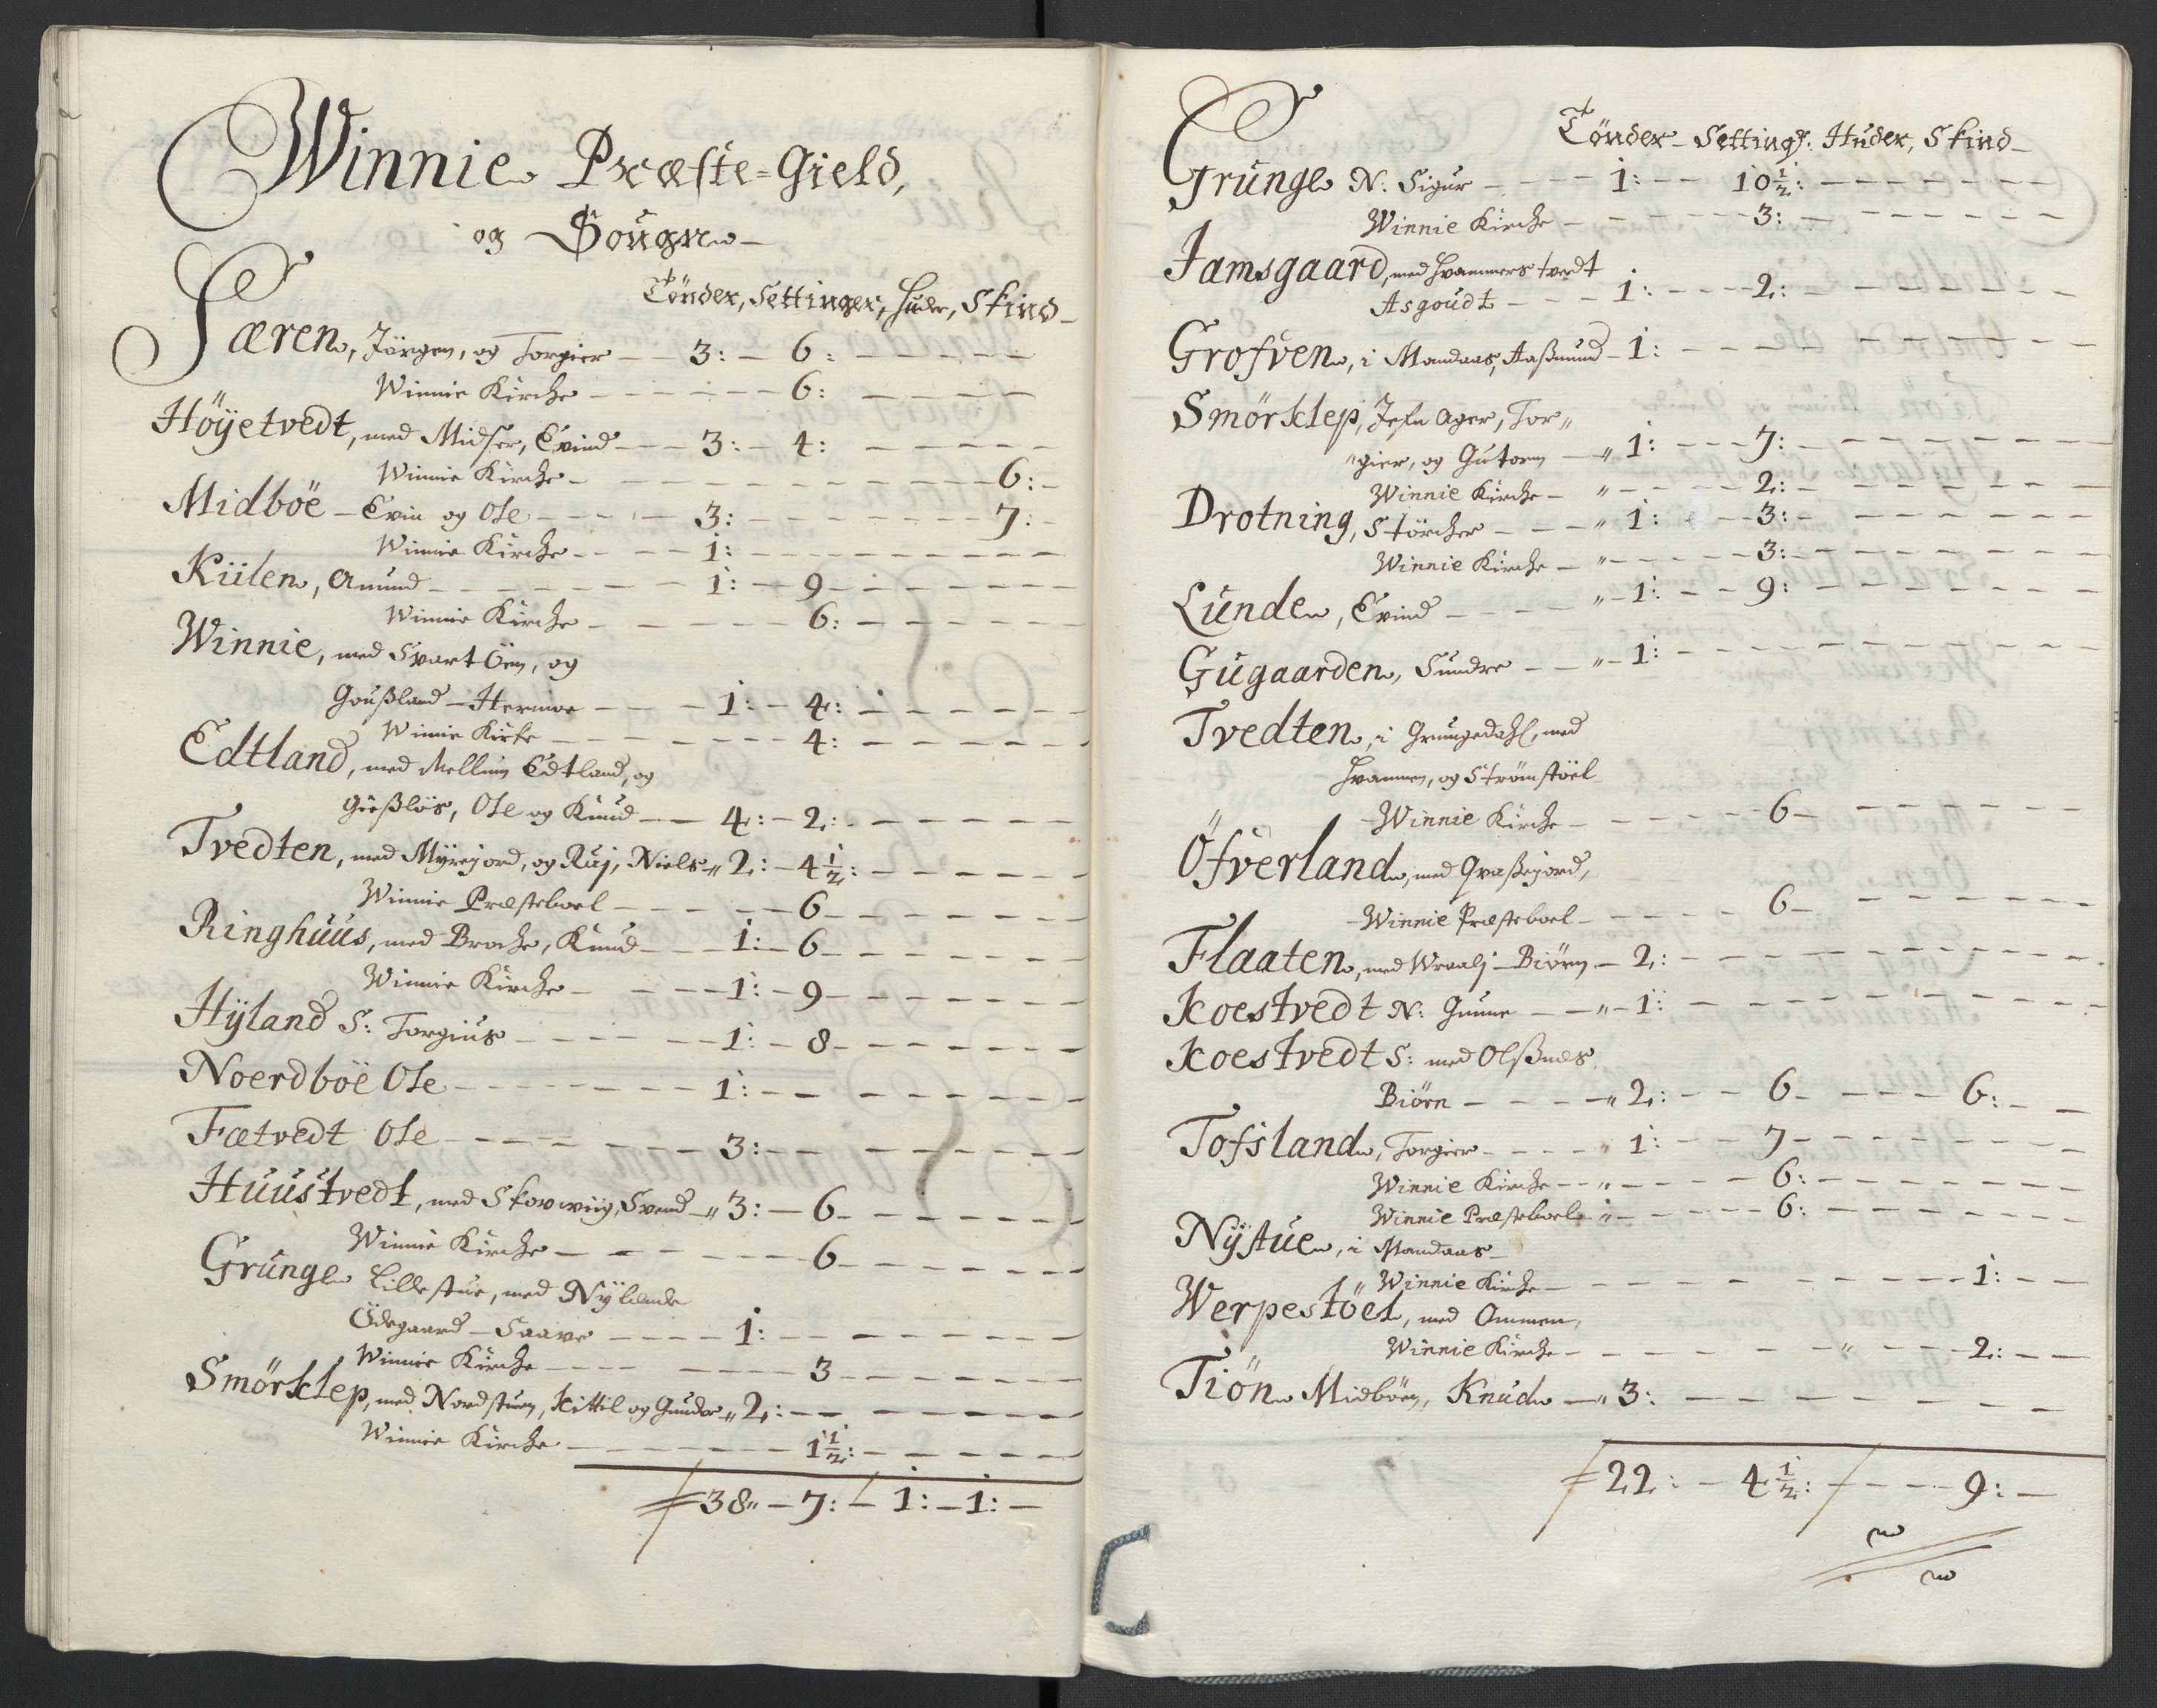 Winnie Præste-Gield,
og Sougn
Tönder, Settinger, Huder, Skind
Særen, Jörgen, og Torgier — 3: — 6:
Winnie Kirche — 6:
Höyetvedt, med Midser, Evind — 3: — 4:
Winnie Kirche — 6:
Midböe — Evin og Ole — 3: — 7:
Winnie Kirche — 1:
Kiilen, Amund — 1: — 9
Winnie Kirche — 6:
Winnie, med Svart Öen, og
Goußland — Hermoe — 1: — 4:
Winnie Kirke — 4:
Edtland, med Mellum Edtland, og
Gießlös, Ole og Knud — 4: — 2:
Tvedten, med Myrejord, og Ruj, Niels „ 2: — 4 1/2:
Winnie Præsteboel — 6
Ringhuus, med Broche, Knud — 1: — 6
Winnie Kirche — 1: — 9
Hyland S: Torgius — 1: — 8
Noerdböe Ole — 1:
Fætvedt Ole — 3:
Huustvedt, med Skovwiig, Svend „ 3: — 6
Winnie Kirche — 6
Grunge Lillestue, med Nylænde
Ödegaard — Saave — 1:
Winnie Kirche — 3
Smörklep, med Nordstuen, Kittil og Gunder „ 2:
Winnie Kirche — 1 1/2:
38 „ — 7: — 1: — 1:
Tönder — Setting: Huder, Skind
Grunge N. Sigur — 1: — 10 1/2:
Winnie Kirche — 3:
Jamsgaard, med Hvammers tvedt
Asgoudt — 1: — 2:
Grofven, i Mandaas, Aaßmund — 1:
Smörklep, Jesn Ager, Tor„
„gier, og Gutorm — „ 1: — 7:
Winnie Kirche — „ — 2:
Drotning, Störcher — „ 1: — 3:
Winnie Kirche — „ — 3:
Lunde, Evind — „ 1: — 9:
Gugaarden, Sundre — „ 1:
Tvedten, i Grungedahl, med
Hvammen, og Strömstöel
Winnie Kirche — 6
Öfverland, med Graßejord,
Winnie Præsteboel — 6
Flaaten, med Wraalj — Biörn — 2:
Koestvedt N: Gunne — „ 1:
Koestvedt S: med Olßnæs
Biörn — „ 2: — 6 — 6:
Tofsland, Torgier — „ 1: — 7
Winnie Kirche — „ — 6:
Winnie Præsteboel „ — 6:
Nystue, i Mandaas
Winnie Kirche — 1:
Werpestöel, med Ommen,
Winnie Kirche — „ — 2:
Tiön Midböen, Knud — „ 3:
22: — 4 1/2: — 9: